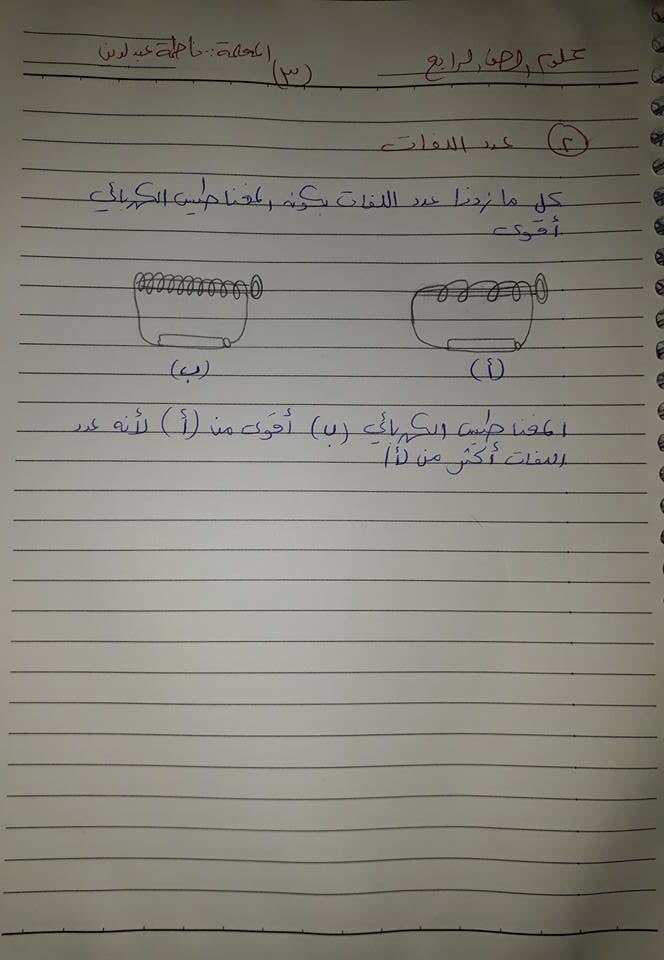 علوم الصف الرابع
المعلمة: فاطمة
(٣)
٢ عدد اللفات
كل ما زدنا عدد اللفات بكونه المغناطيس الكهربائي
أقوى
(أ) (ب)
المغناطيس الكهربائي (ب) أقوى من (أ) لأنه عدد
اللفات أكثر من (أ)